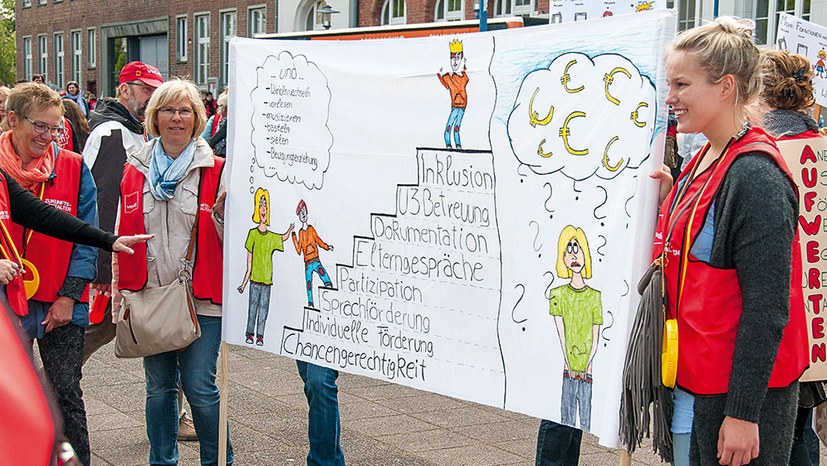 ... UND ...
- Windeln wechseln
- vorlesen
- musizieren
- basteln
- spielen
- Bewegungserziehung
Inklusion
U3 Betreuung
Dokumentation
Elterngespräche
Partizipation
Sprachförderung
Individuelle Förderung
Chancengerechtigkeit
€ € € € € € € €
? ? ? ? ? ? ? ?
ZUKUNFTS-
AUFWERTEN